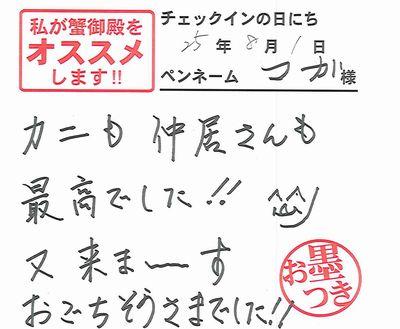 私が蟹御殿を
オススメ
します!!
チェックインの日にち
25年8月1日
ペンネーム つが様
カニも 仲居さんも
最高でした!!
又来まーす
おごちそうさまでした!!
お墨つき